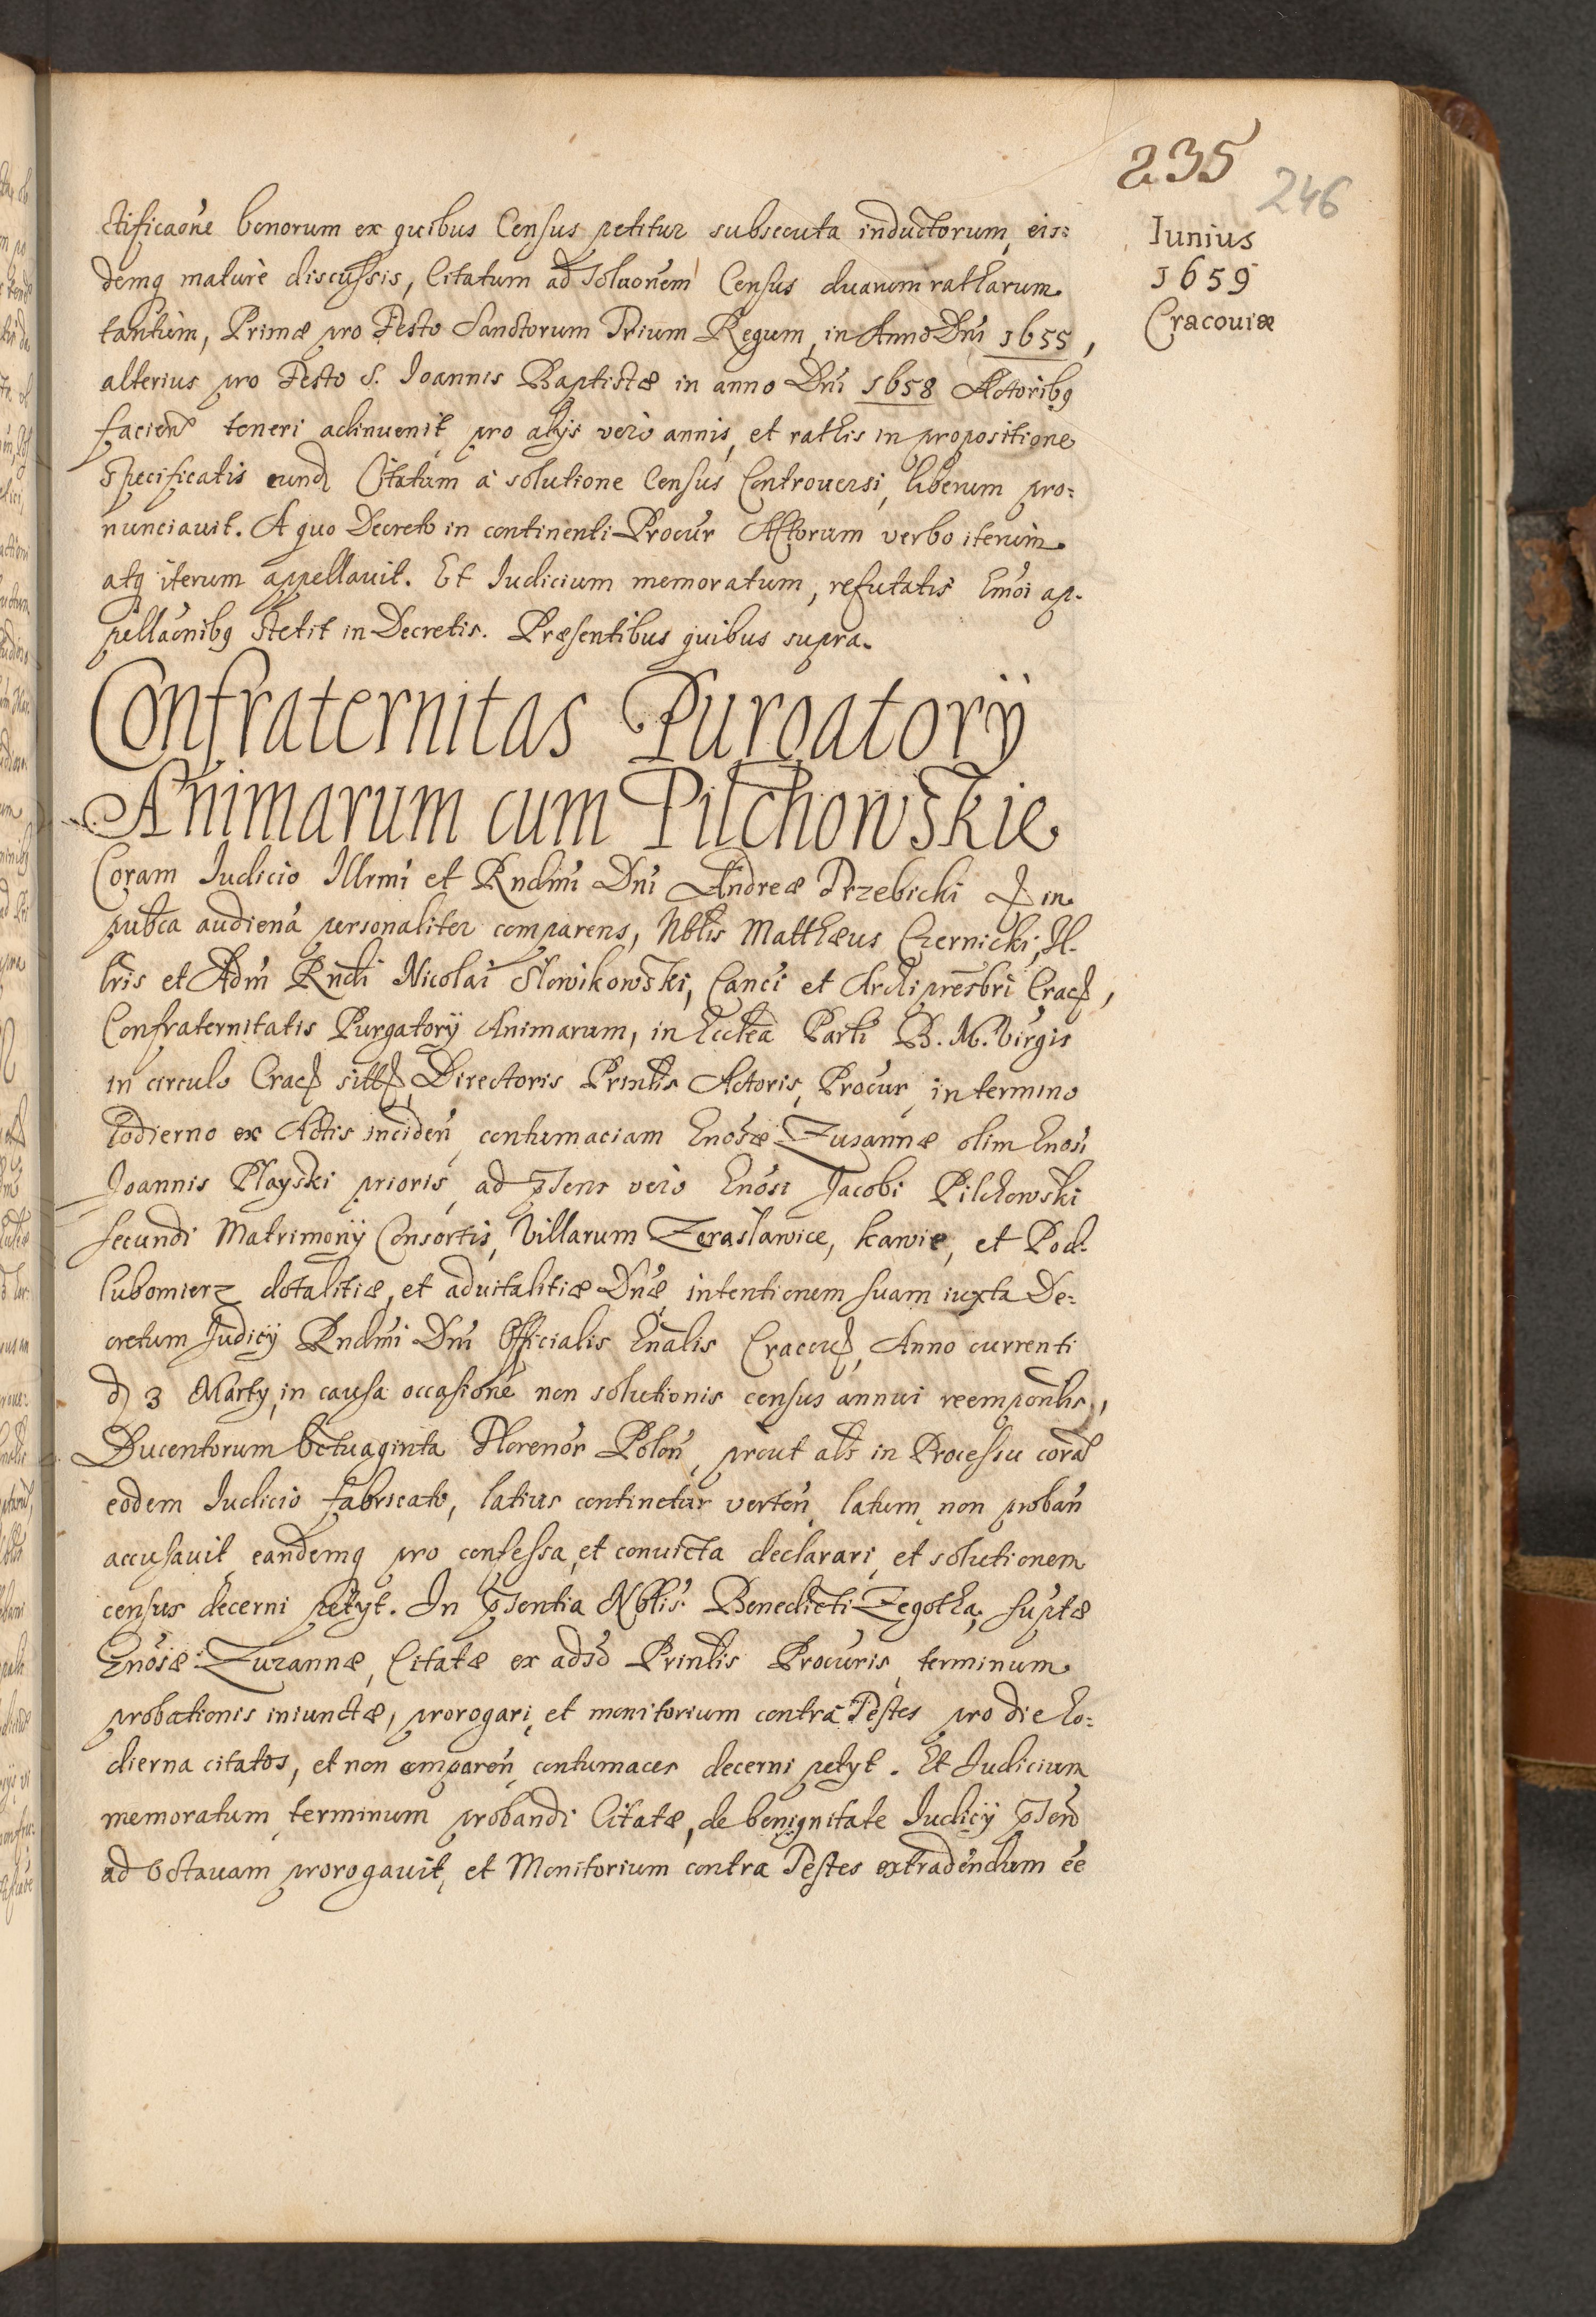 235
246
Iunius
1659
Cracouiæ
ctificaone bonorum ex quibus Census petitur subsecuta inductorum, eis=
demq maturè discussis, Citatum ad Soluonem Census duarum ratharum
tantùm, Primæ pro Festo Sanctorum Trium Regum, in Anno Dni 1655,
alterius pro Festo S. Ioannis Baptistæ in anno Dni 1658 Actoribq
facien teneri adinuenit, pro alijs verò annis, et rathis in propositione
specificatis eund Citatum à solutione Census Controuersi, liberum pro=
nunciauit. A quo Decreto in continenti Procur Actorum verbo iterùm
atq iterum appellauit. Et Iudicium memoratum, refutatis hmoi ap-
pellaonibq stetit in Decretis. Præsentibus quibus supra.
Confraternitas Purgatorÿ
Animarum cum Pilchowskie
Coram Iudicio Illrmi et Rndmi Dni Andreæ Trzebicki & in
pubca audiena personaliter comparens, Nblis Matthæus Czernicki, Il-
lris et Adm Rndi Nicolai Słowikowski, Canci et Archipresbri Crac,
Confraternitatis Purgatorÿ Animarum, in Ecclea Parli B. M. Virgis
in circulo Crac sitt, Directoris Prinlis Actoris, Procur, in termino
hodierno ex Actis inciden, contumaciam Gnosæ Zusannæ olim Gnosi
Ioannis Płayski prioris, ad pšens verò Gnosi Jacobi Pilchowski
secundi Matrimonÿ Consortis, Villarum Zerasławice, kawie, et Pod-
lubomierz dotalitiæ, et aduitalitiæ Dnæ, intentionem suam iuxta De=
cretum Judicÿ Rndmi Dni Officialis Gnalis Cracou, Anno currenti
d 3 Martÿ, in causa occasione non solutionis census annui reemponlis,
Ducentorum Octuaginta Florenor Polon, prout als in Processu coral
eodem Iudicio fabricato, latius continetur verten, latum, non proban
accusauit, eandemq pro confessa, et conuicta declarari, et solutionem
census decerni petyt. In pšentia Nblis Benedicti Zegotha, suptæ
Gnosæ Zuzannæ, Citatæ ex adso Prinlis Procuris, terminum
probationis iniunctæ, prorogari, et monitorium contra Testes pro die ho=
dierna citatos, et non comparen, contumaces decerni petyt. Et Iudicium
memoratum, terminum probandi Citatæ, de benignitate Iudicÿ pšens
ad Octauam prorogauit, et Monitorium contra Testes extradendum ee